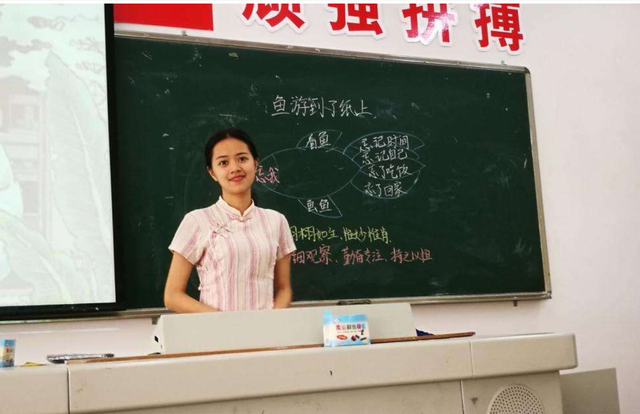 顽强拼搏
鱼游到了纸上
看鱼
忘记时间
忘记自己
忘我
忘了吃饭
忘了回家
画鱼
栩栩如生、惟妙惟肖
细观察、勤奋专注、持之以恒